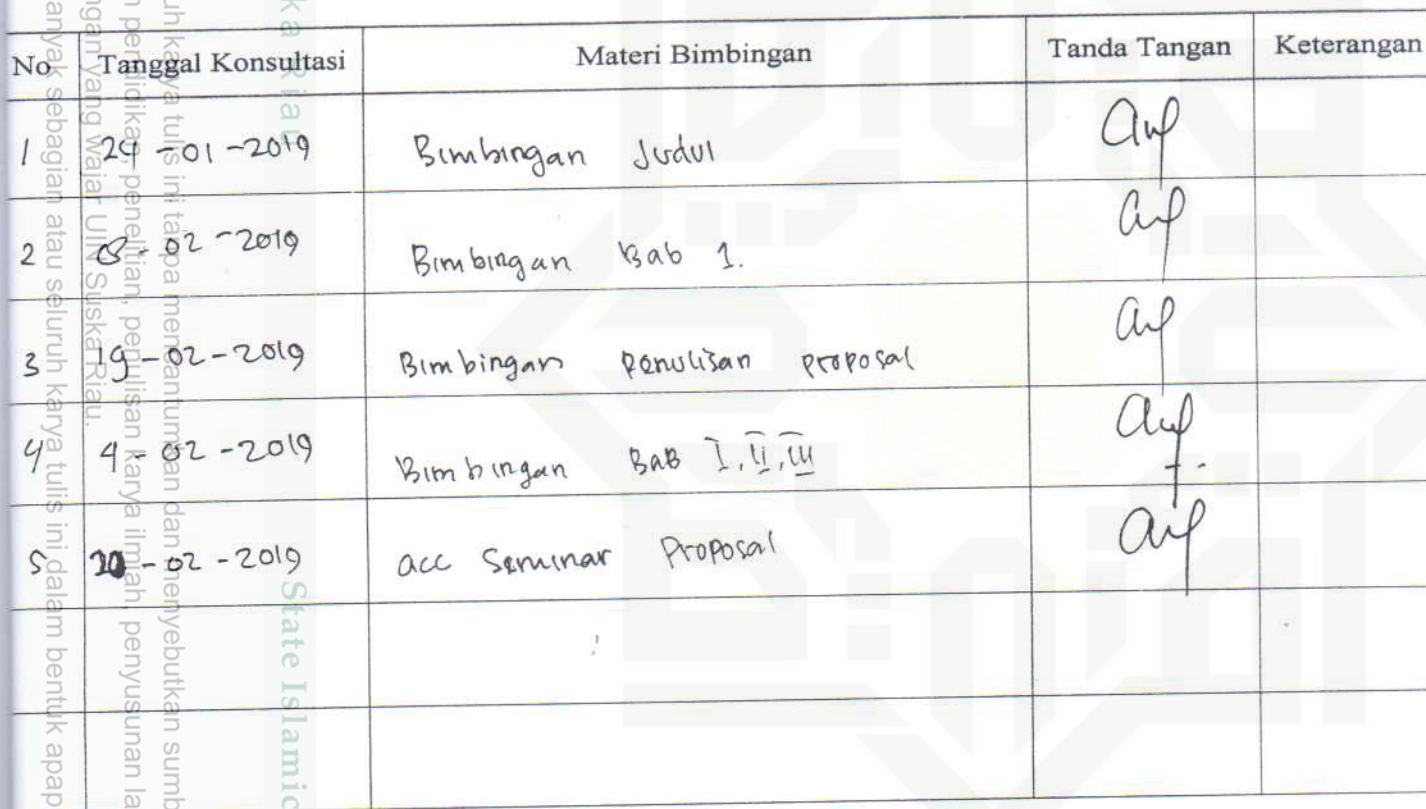 No Tanggal Konsultasi Materi Bimbingan Tanda Tangan Keterangan
1 29-01-2019 Bimbingan Judul
2 08-02-2019 Bimbingan Bab 1.
3 19-02-2019 Bimbingan Penulisan proposal
4 4-02-2019 Bimbingan BAB I, II, III
5 20-02-2019 acc Seminar Proposal
ka Riau
State Islamic
uh karya tulis ini tanpa mencantumkan dan menyebutkan sumb
n pendidikan, penelitian, penulisan karya ilmiah, penyusunan la
ngan yang wajar UIN Suska Riau.
anyak sebagian atau seluruh karya tulis ini dalam bentuk apap